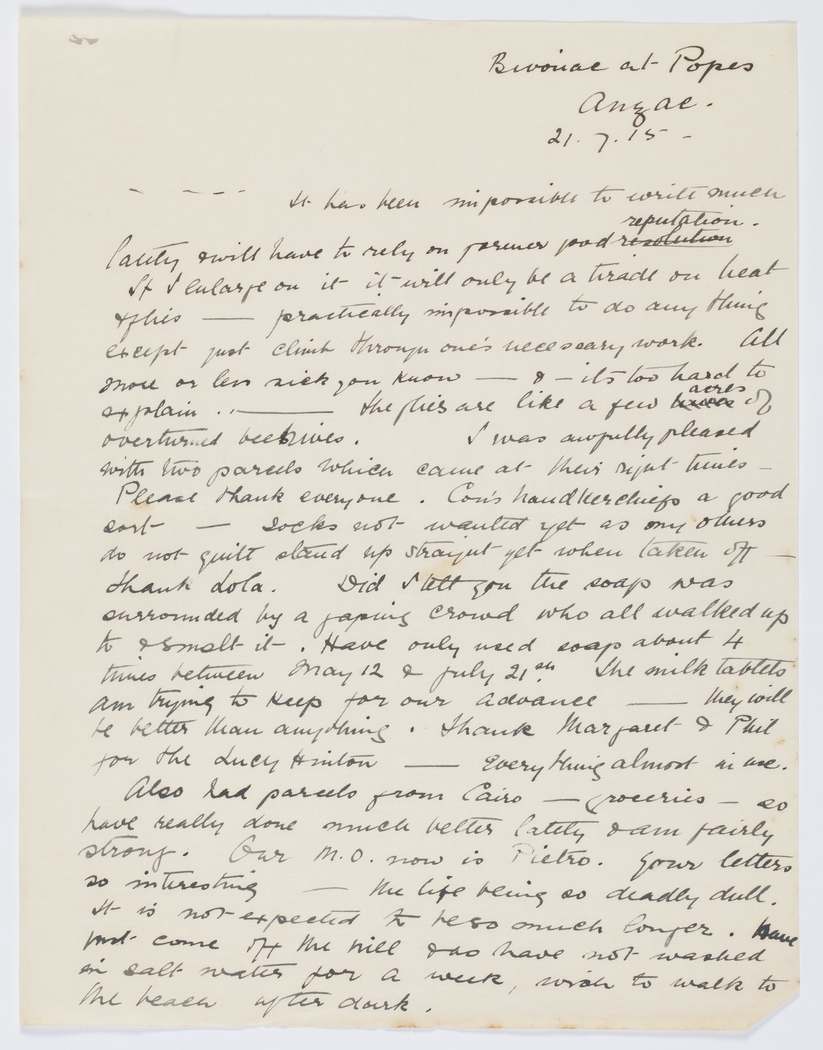 Bivouac at Popes
Anzac.
21. 7. 15 -
- - - - It has been impossible to write much
reputation.
lately & will have to rely on former good resolution
If I enlarge on it it will only be a tirade on heat
& flies — practically impossible to do any thing
except just climb through one's necessary work. All
more or less sick you know — & - its too hard to
acres
explain . . — the flies are like a few of
overturned beehives. I was awfully pleased
with two parcels which came at their right times -
Please thank everyone. Con's handkerchiefs a good
sort — socks not wanted yet as my others
do not quilt stand up straight yet when taken off —
thank Lola. Did I tell you the soap was
surrounded by a gaping crowd who all walked up
to & smelt it. Have only used soap about 4
times between May 12 & July 21st. The milk tablets
am trying to keep for our advance — they will
be better than anything. Thank Margaret & Phil
for the Lucy Hinton — Everything almost in use.
Also had parcels from Cairo — groceries - so
have really done much better lately & am fairly
strong. Our M.O. now is Pietro. Your letters
so interesting — the life being so deadly dull.
It is not expected to be so much longer. Have
just come off the hill & as have not washed
in salt water for a week, wish to walk to
the beach after dark.